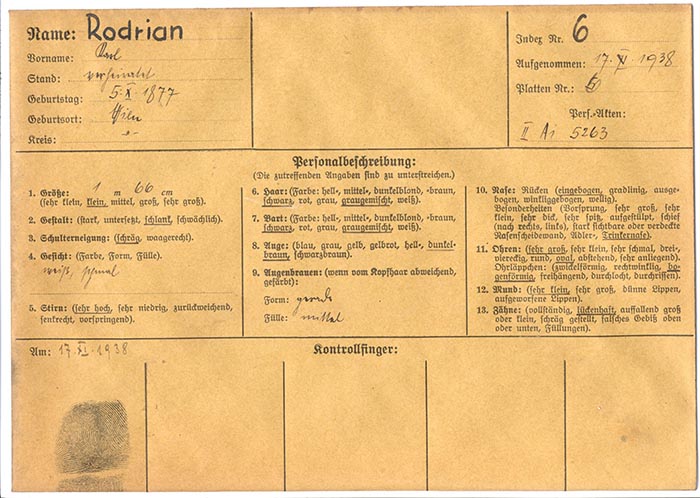 Name: Rodrian
Vorname: Karl
Stand: verheiratet
Geburtstag: 5. X. 1877
Geburtsort: Wien
Kreis: "
Index Nr. 6
Aufgenommen: 17. XI. 1938
Platten Nr.:
Pers.-Akten:
II Ai 5263
Personalbeschreibung:
(Die zutreffenden Angaben sind zu unterstreichen.)
1. Größe: 1 m 66 cm
(sehr klein, klein, mittel, groß, sehr groß).
2. Gestalt: (stark, untersetzt, schlank, schwächlich).
3. Schulterneigung: (schräg, waagerecht).
4. Gesicht: (Farbe, Form, Fülle).
weiß, schmal
5. Stirn: (sehr hoch, sehr niedrig, zurückweichend,
senkrecht, vorspringend).
6. Haar: (Farbe: hell-, mittel-, dunkelblond, -braun,
schwarz, rot, grau, graugemischt, weiß).
7. Bart: (Farbe: hell-, mittel-, dunkelblond, -braun,
schwarz, rot, grau, graugemischt, weiß).
8. Auge: (blau, grau, gelb, gelbrot, hell-, dunkel-
braun, schwarzbraun).
9. Augenbrauen: (wenn vom Kopfhaar abweichend,
gefärbt):
Form: gerade
Fülle: mittel
10. Nase: Rücken (eingebogen, gradlinig, ausge-
bogen, winkliggebogen, wellig).
Besonderheiten (Vorsprung, sehr groß, sehr
klein, sehr dick, sehr spitz, aufgestülpt, schief
(nach rechts, links), stark sichtbare oder verdeckte
Nasenscheidewand, Adler-, Trinkernase).
11. Ohren: (sehr groß, sehr klein, sehr schmal, drei-,
viereckig, rund, oval, abstehend, sehr anliegend).
Ohrläppchen: (zwickelförmig, rechtwinklig, bo-
genförmig, freihängend, durchlocht, durchrissen).
12. Mund: (sehr klein, sehr groß, dünne Lippen,
aufgeworfene Lippen).
13. Zähne: (vollständig, lückenhaft, auffallend groß
oder klein, schräg gestellt, falsches Gebiß oben
oder unten, Füllungen).
Am: 17. XI. 1938
Kontrollfinger: